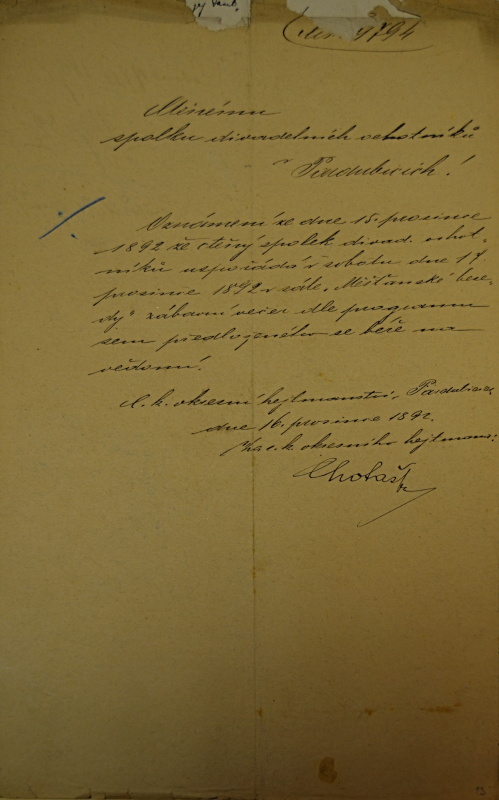 9794
Slavnému
spolku divadelních ochotníků
v Pardubicích!
Oznámení ze dne 15. prosince
1892 že ctěný spolek divad. ochot-
níků uspořádá v sobotu dne 17
prosince 1892 v sále „Měšťanské bese-
dy" zábavní večer dle programu
sem předloženého se béře na
vědomí.
C. k. okresní hejtmanství, Pardubice
dne 16. prosince 1892.
Za c. k. okresního hejtmana:
Chotaš